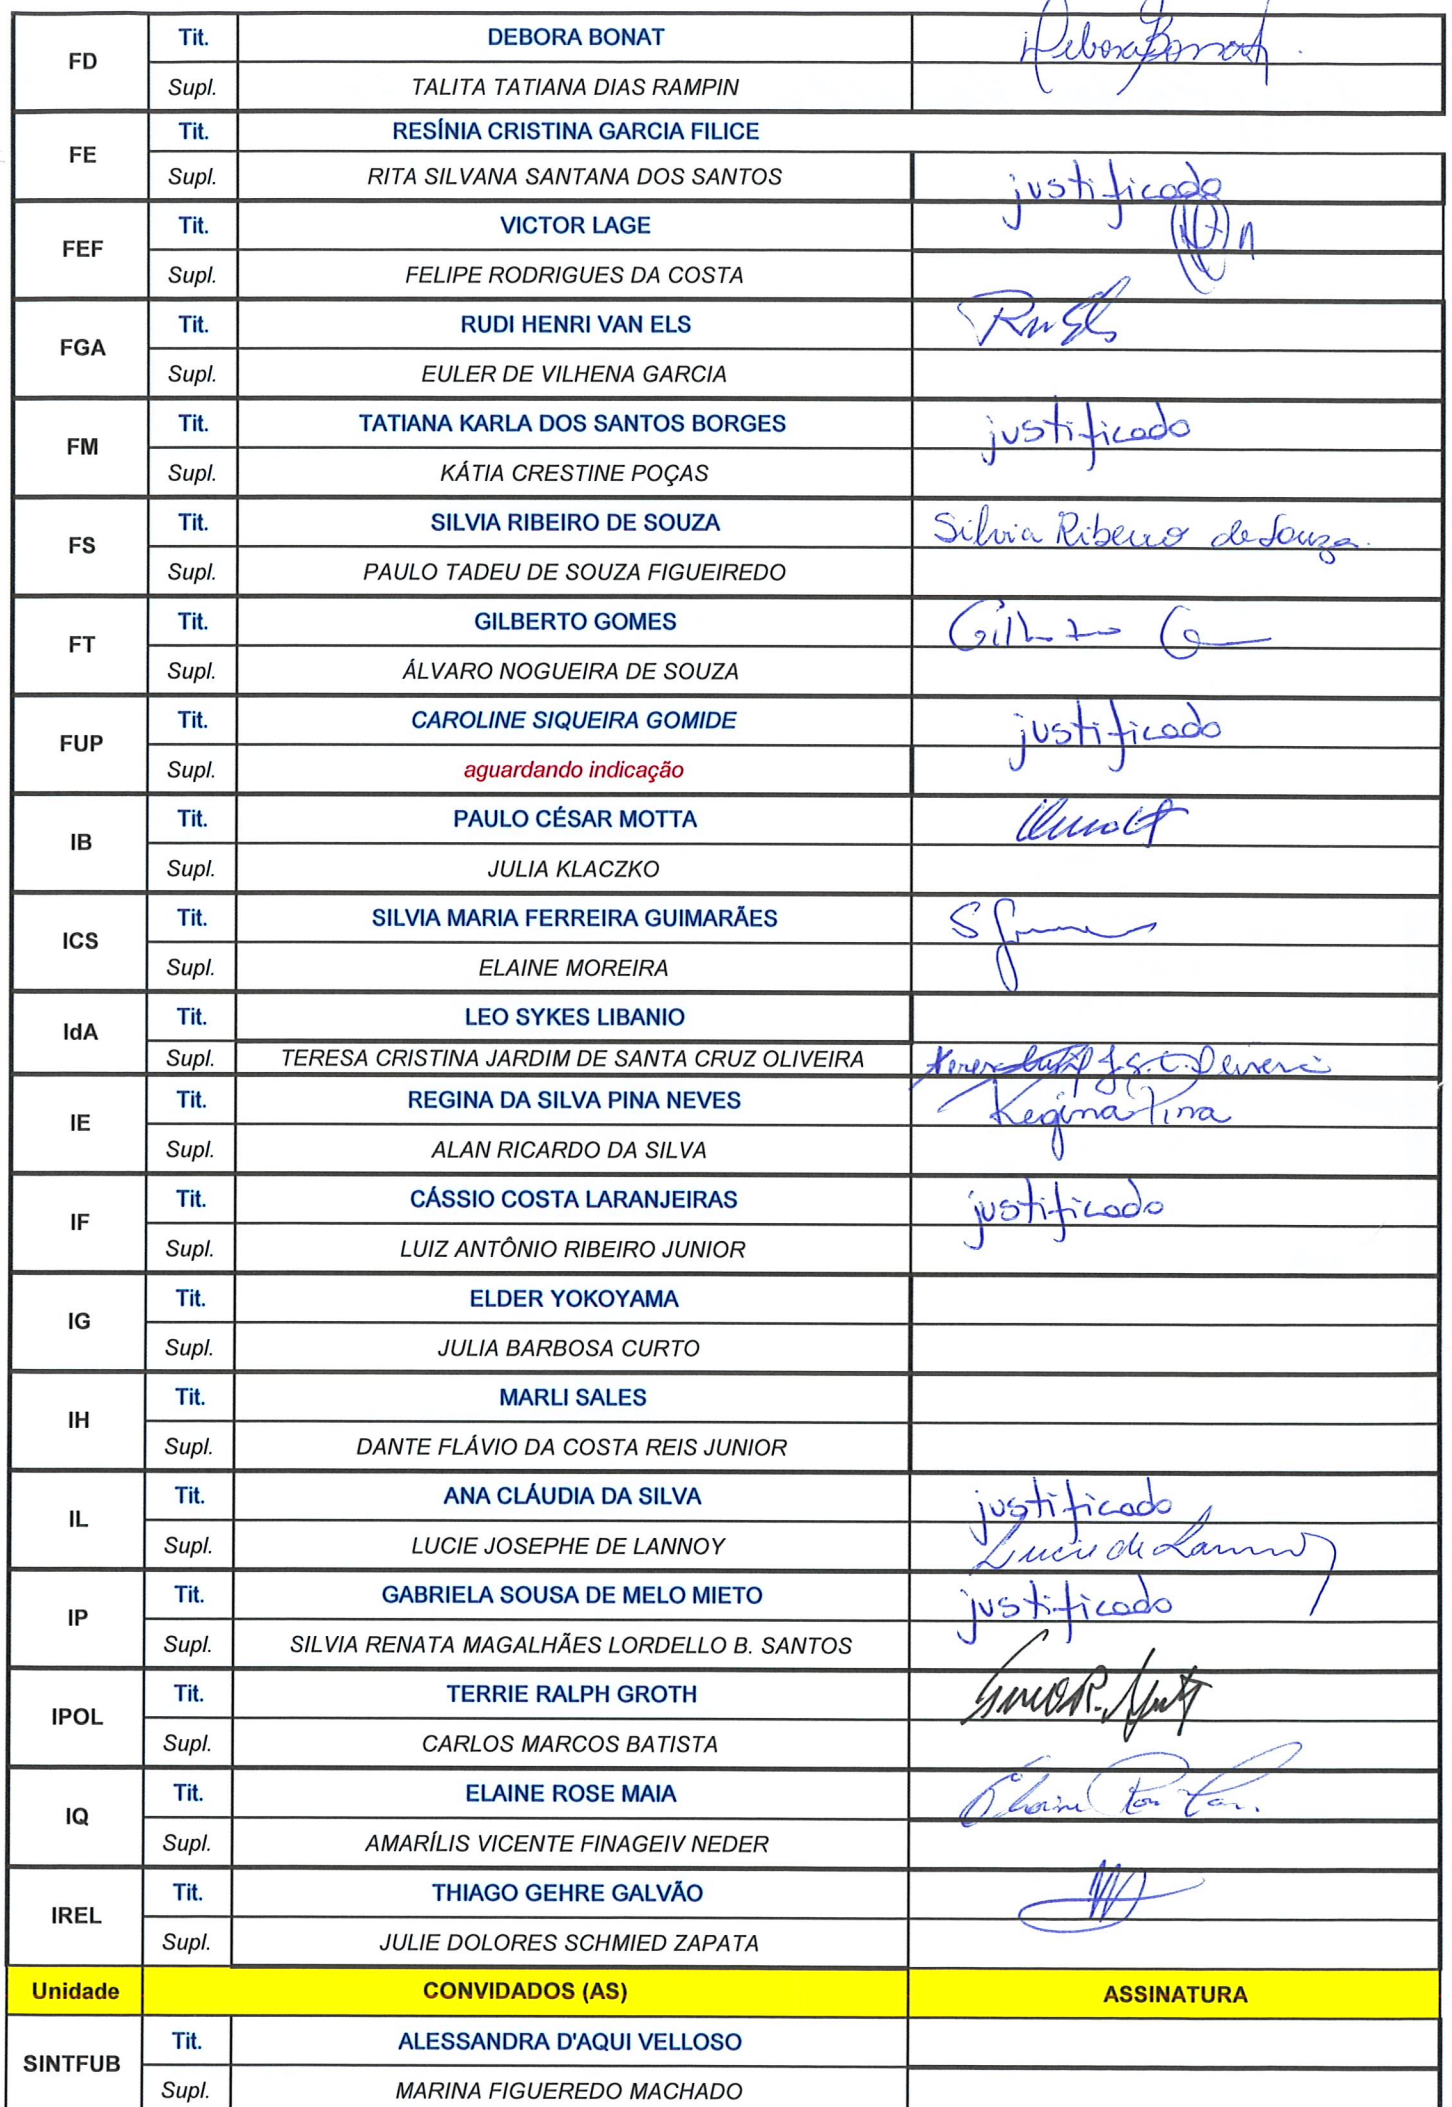 FD Tit. DEBORA BONAT Debora Bonat
Supl. TALITA TATIANA DIAS RAMPIN
FE Tit. RESÍNIA CRISTINA GARCIA FILICE
Supl. RITA SILVANA SANTANA DOS SANTOS justificado
FEF Tit. VICTOR LAGE
Supl. FELIPE RODRIGUES DA COSTA
FGA Tit. RUDI HENRI VAN ELS
Supl. EULER DE VILHENA GARCIA
FM Tit. TATIANA KARLA DOS SANTOS BORGES justificado
Supl. KÁTIA CRESTINE POÇAS
FS Tit. SILVIA RIBEIRO DE SOUZA Silvia Ribeiro de Souza
Supl. PAULO TADEU DE SOUZA FIGUEIREDO
FT Tit. GILBERTO GOMES
Supl. ÁLVARO NOGUEIRA DE SOUZA
FUP Tit. CAROLINE SIQUEIRA GOMIDE justificado
Supl. aguardando indicação
IB Tit. PAULO CÉSAR MOTTA
Supl. JULIA KLACZKO
ICS Tit. SILVIA MARIA FERREIRA GUIMARÃES
Supl. ELAINE MOREIRA
IdA Tit. LEO SYKES LIBANIO
Supl. TERESA CRISTINA JARDIM DE SANTA CRUZ OLIVEIRA
IE Tit. REGINA DA SILVA PINA NEVES Regina Pina
Supl. ALAN RICARDO DA SILVA
IF Tit. CÁSSIO COSTA LARANJEIRAS justificado
Supl. LUIZ ANTÔNIO RIBEIRO JUNIOR
IG Tit. ELDER YOKOYAMA
Supl. JULIA BARBOSA CURTO
IH Tit. MARLI SALES
Supl. DANTE FLÁVIO DA COSTA REIS JUNIOR
IL Tit. ANA CLÁUDIA DA SILVA justificado
Supl. LUCIE JOSEPHE DE LANNOY Lucie de Lannoy
IP Tit. GABRIELA SOUSA DE MELO MIETO justificado
Supl. SILVIA RENATA MAGALHÃES LORDELLO B. SANTOS
IPOL Tit. TERRIE RALPH GROTH
Supl. CARLOS MARCOS BATISTA
IQ Tit. ELAINE ROSE MAIA
Supl. AMARÍLIS VICENTE FINAGEIV NEDER
IREL Tit. THIAGO GEHRE GALVÃO
Supl. JULIE DOLORES SCHMIED ZAPATA
Unidade CONVIDADOS (AS) ASSINATURA
SINTFUB Tit. ALESSANDRA D'AQUI VELLOSO
Supl. MARINA FIGUEREDO MACHADO